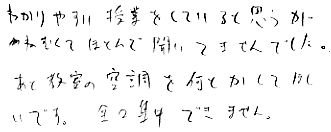 わかりやすい授業をしていると思うが
ねむくてほとんど聞いてませんでした。
あと教室の空調を何とかしてほし
いです。全く集中できません。